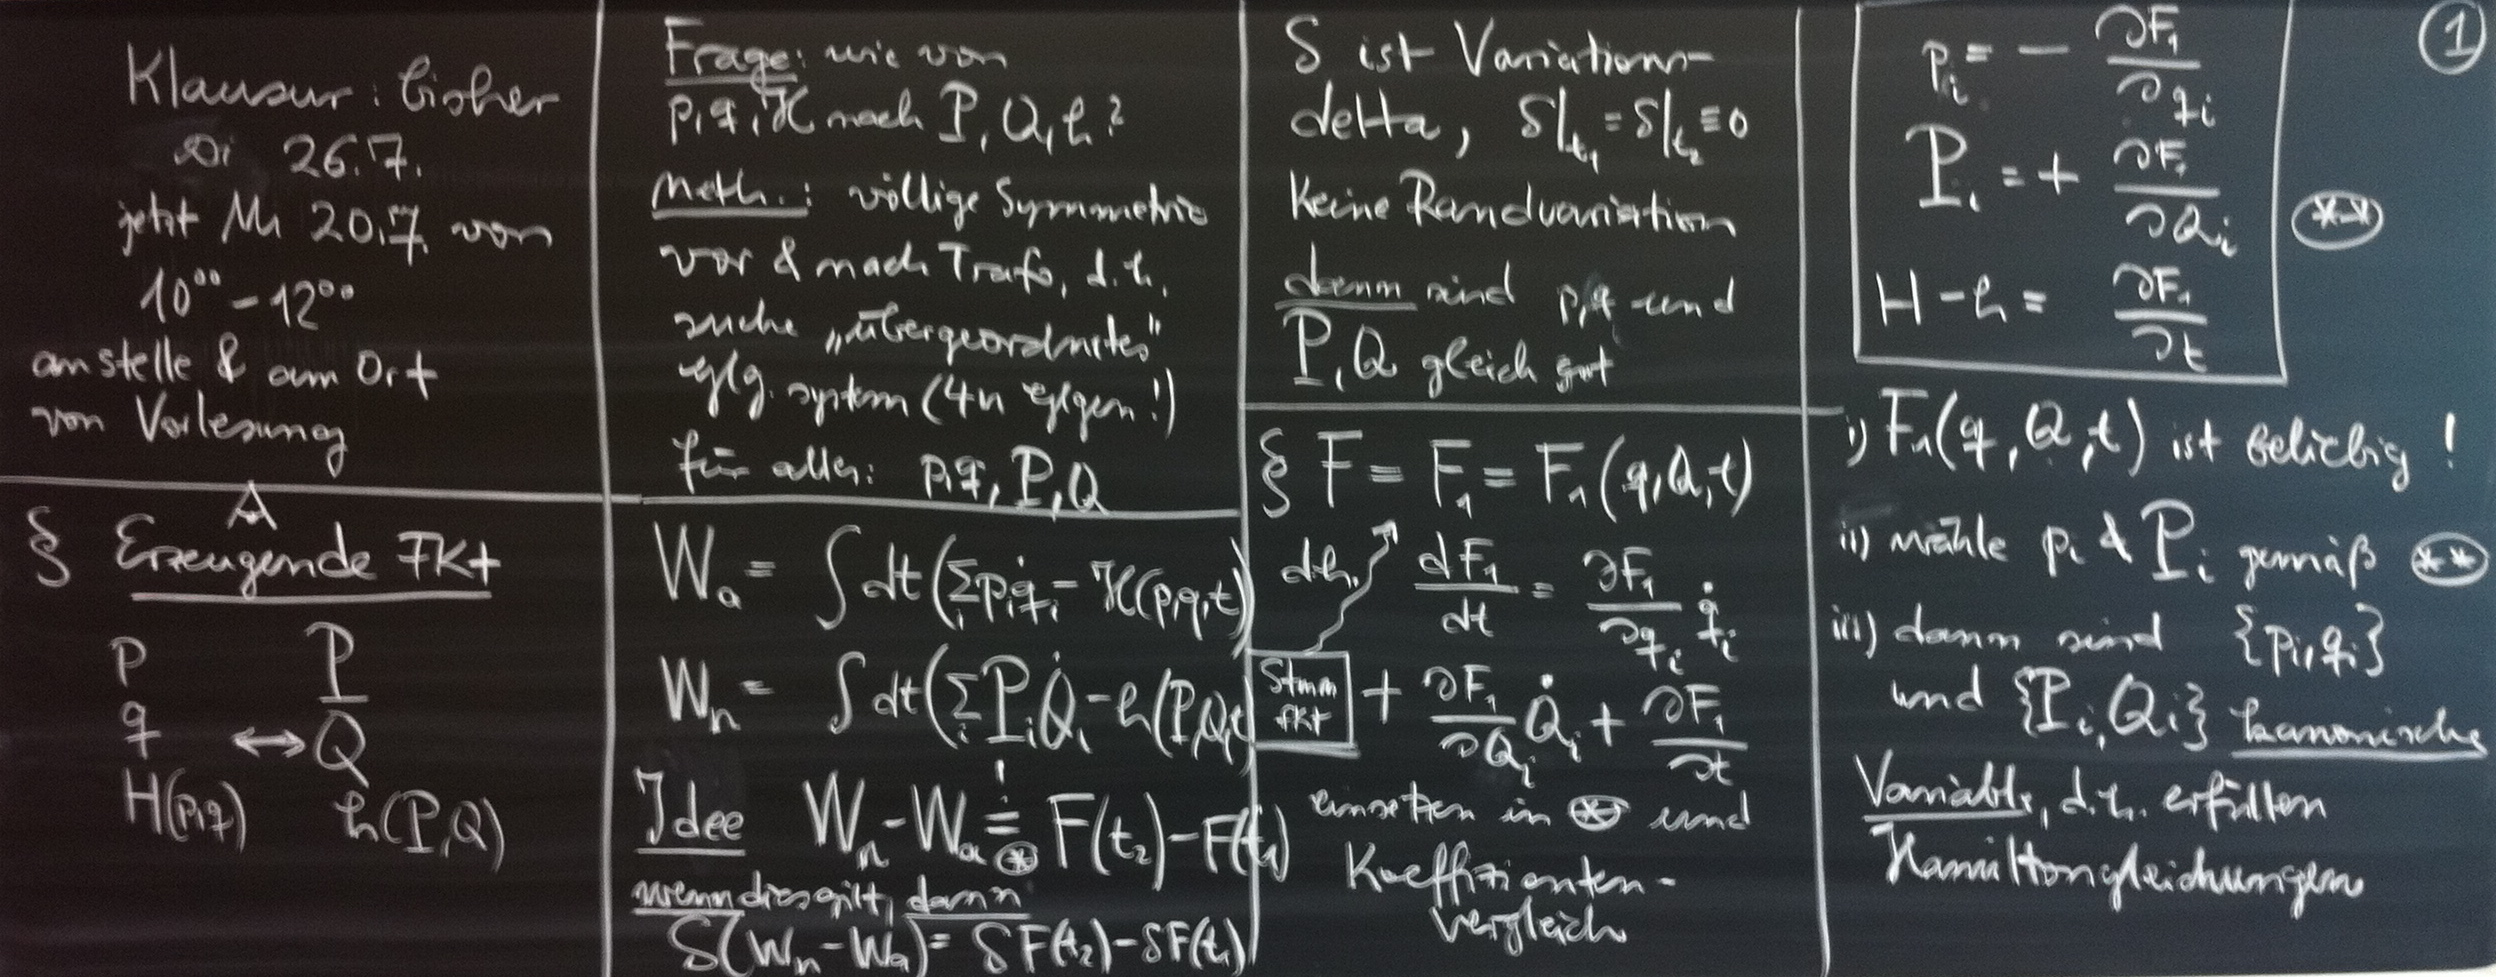 Klausur: bisher
Di 26.7.
jetzt Mi 20.7. von
10⁰⁰ - 12⁰⁰
anstelle & am Ort
von Vorlesung
§ A Erzeugende Fkt
p P
q ↔ Q
H(p,q) h(P,Q)
Frage: wie von
p,q,H nach P,Q,h?
Meth.: völlige Symmetrie
vor & nach Trafo, d.h.
suche „übergeordnetes"
Glg. system (4n Glgen!)
für alle: p,q, P,Q
Wₐ = ∫ dt (Σᵢ pᵢ q̇ᵢ - H(p,q,t)
Wₙ = ∫ dt (Σᵢ Pᵢ Q̇ᵢ - h(P,Q,t
Idee Wₙ - Wₐ =! ⊛ F(t₂) - F(t₁)
wenn dies gilt, dann
δ(Wₙ - Wₐ) = δF(t₂) - δF(t₁)
δ ist Variations-
delta, δ|t₁ = δ|t₂ ≡ 0
Keine Randvariation
dann sind p,q und
P,Q gleich gut
§ F = F₁ = F₁(q,Q,t)
d.h. dF₁/dt = ∂F₁/∂qᵢ q̇ᵢ
Stamm fkt + ∂F₁/∂Qᵢ Q̇ᵢ + ∂F₁/∂t
einsetzen in ⊛ und
Koeffizienten-
vergleich
①
pᵢ = - ∂F₁/∂qᵢ
Pᵢ = + ∂F₁/∂Qᵢ
(**)
H - h = ∂F₁/∂t
i) F₁(q,Q,t) ist beliebig!
ii) wähle pᵢ & Pᵢ gemäß (**)
iii) dann sind {pᵢ,qᵢ}
und {Pᵢ,Qᵢ} kanonische
Variable, d.h. erfüllen
Hamiltongleichungen